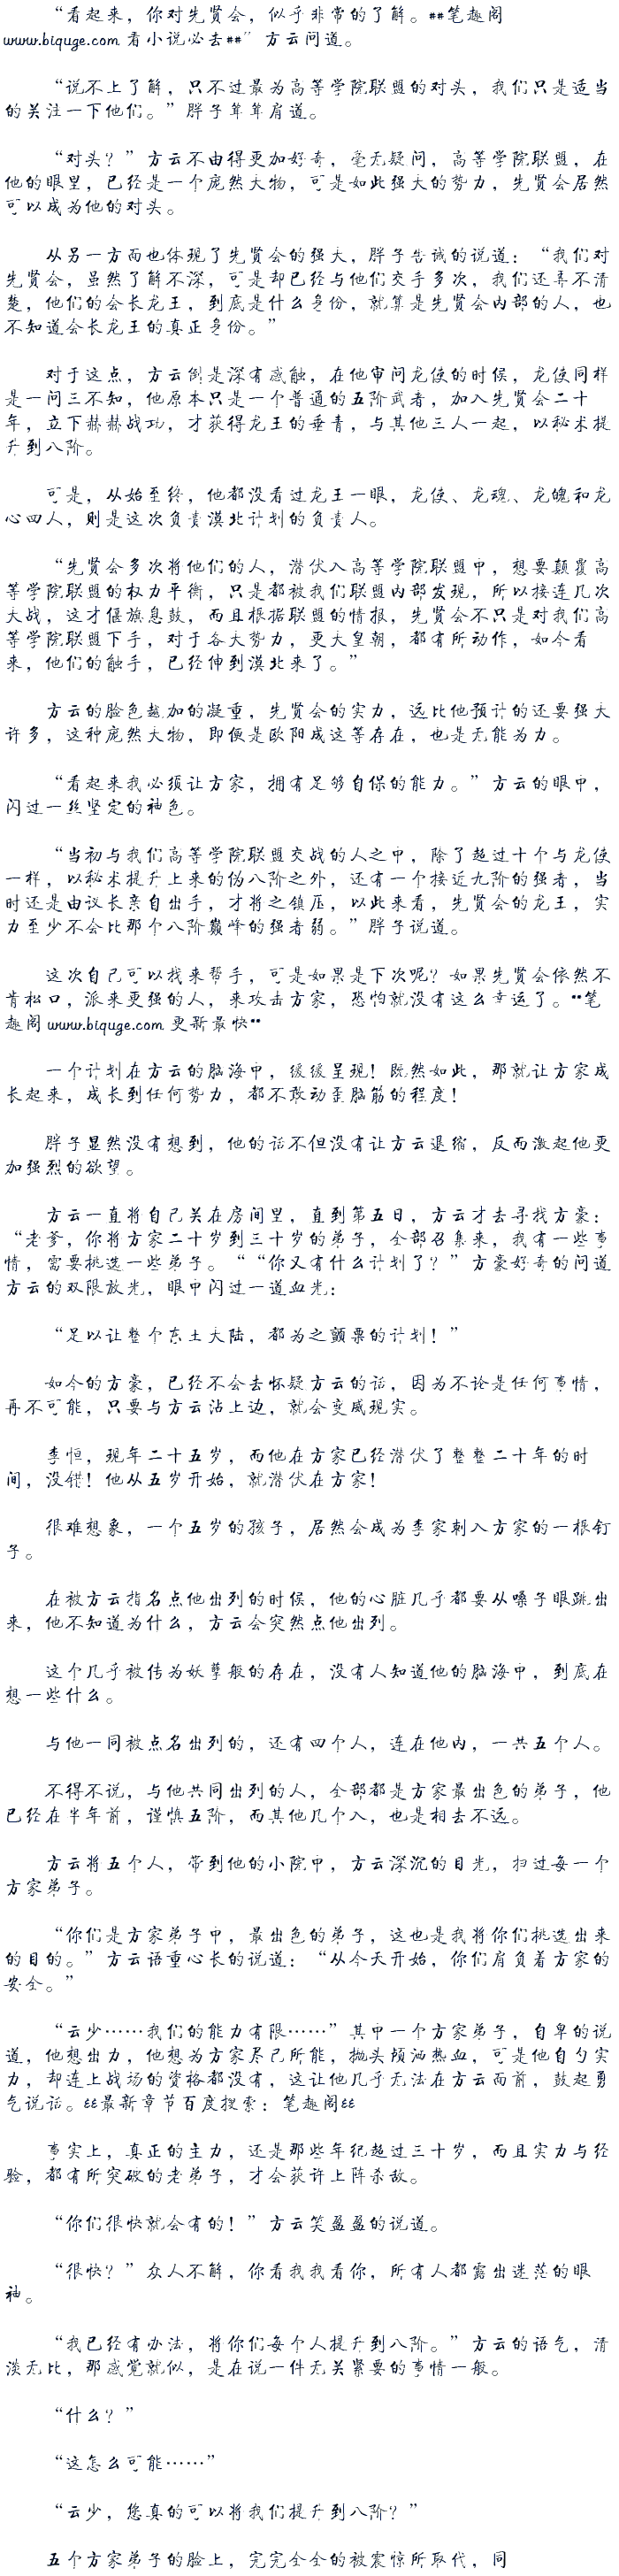 “看起来，你对先贤会，似乎非常的了解。##笔趣阁
www.biquge.com 看小说必去##”方云问道。
“说不上了解，只不过最为高等学院联盟的对头，我们只是适当
的关注一下他们。”胖子耸耸肩道。
“对头？”方云不由得更加好奇，毫无疑问，高等学院联盟，在
他的眼里，已经是一个庞然大物，可是如此强大的势力，先贤会居然
可以成为他的对头。
从另一方面也体现了先贤会的强大，胖子告诫的说道：“我们对
先贤会，虽然了解不深，可是却已经与他们交手多次，我们还弄不清
楚，他们的会长龙王，到底是什么身份，就算是先贤会内部的人，也
不知道会长龙王的真正身份。”
对于这点，方云倒是深有感触，在他审问龙使的时候，龙使同样
是一问三不知，他原本只是一个普通的五阶武者，加入先贤会二十
年，立下赫赫战功，才获得龙王的垂青，与其他三人一起，以秘术提
升到八阶。
可是，从始至终，他都没看过龙王一眼，龙使、龙魂、龙魄和龙
心四人，则是这次负责漠北计划的负责人。
“先贤会多次将他们的人，潜伏入高等学院联盟中，想要颠覆高
等学院联盟的权力平衡，只是都被我们联盟内部发现，所以接连几次
大战，这才偃旗息鼓，而且根据联盟的情报，先贤会不只是对我们高
等学院联盟下手，对于各大势力，更大皇朝，都有所动作，如今看
来，他们的触手，已经伸到漠北来了。”
方云的脸色越加的凝重，先贤会的实力，远比他预计的还要强大
许多，这种庞然大物，即便是欧阳成这等存在，也是无能为力。
“看起来我必须让方家，拥有足够自保的能力。”方云的眼中，
闪过一丝坚定的神色。
“当初与我们高等学院联盟交战的人之中，除了超过十个与龙使
一样，以秘术提升上来的伪八阶之外，还有一个接近九阶的强者，当
时还是由议长亲自出手，才将之镇压，以此来看，先贤会的龙王，实
力至少不会比那个八阶巅峰的强者弱。”胖子说道。
这次自己可以找来帮手，可是如果是下次呢？如果先贤会依然不
肯松口，派来更强的人，来攻击方家，恐怕就没有这么幸运了。**笔
趣阁 www.biquge.com 更新最快**
一个计划在方云的脑海中，缓缓呈现！既然如此，那就让方家成
长起来，成长到任何势力，都不敢动歪脑筋的程度！
胖子显然没有想到，他的话不但没有让方云退缩，反而激起他更
加强烈的欲望。
方云一直将自己关在房间里，直到第五日，方云才去寻找方豪：
“老爹，你将方家二十岁到三十岁的弟子，全部召集来，我有一些事
情，需要挑选一些弟子。““你又有什么计划了？”方豪好奇的问道
方云的双限放光，眼中闪过一道血光：
“足以让整个东土大陆，都为之颤栗的计划！”
如今的方豪，已经不会去怀疑方云的话，因为不论是任何事情，
再不可能，只要与方云沾上边，就会变成现实。
李恒，现年二十五岁，而他在方家已经潜伏了整整二十年的时
间，没错！他从五岁开始，就潜伏在方家！
很难想象，一个五岁的孩子，居然会成为李家刺入方家的一根钉
子。
在被方云指名点他出列的时候，他的心脏几乎都要从嗓子眼跳出
来，他不知道为什么，方云会突然点他出列。
这个几乎被传为妖孽般的存在，没有人知道他的脑海中，到底在
想一些什么。
与他一同被点名出列的，还有四个人，连在他内，一共五个人。
不得不说，与他共同出列的人，全部都是方家最出色的弟子，他
已经在半年前，谨慎五阶，而其他几个人，也是相去不远。
方云将五个人，带到他的小院中，方云深沉的目光，扫过每一个
方家弟子。
“你们是方家弟子中，最出色的弟子，这也是我将你们挑选出来
的目的。”方云语重心长的说道：“从今天开始，你们肩负着方家的
安全。”
“云少……我们的能力有限……”其中一个方家弟子，自卑的说
道，他想出力，他想为方家尽已所能，抛头颅洒热血，可是他自幼实
力，却连上战场的资格都没有，这让他几乎无法在方云面前，鼓起勇
气说话。&&最新章节百度搜索：笔趣阁&&
事实上，真正的主力，还是那些年纪超过三十岁，而且实力与经
验，都有所突破的老弟子，才会获许上阵杀敌。
“你们很快就会有的！”方云笑盈盈的说道。
“很快？”众人不解，你看我我看你，所有人都露出迷茫的眼
神。
“我已经有办法，将你们每个人提升到八阶。”方云的语气，清
淡无比，那感觉就似，是在说一件无关紧要的事情一般。
“什么？”
“这怎么可能……”
“云少，您真的可以将我们提升到八阶？”
五个方家弟子的脸上，完完全全的被震惊所取代，同